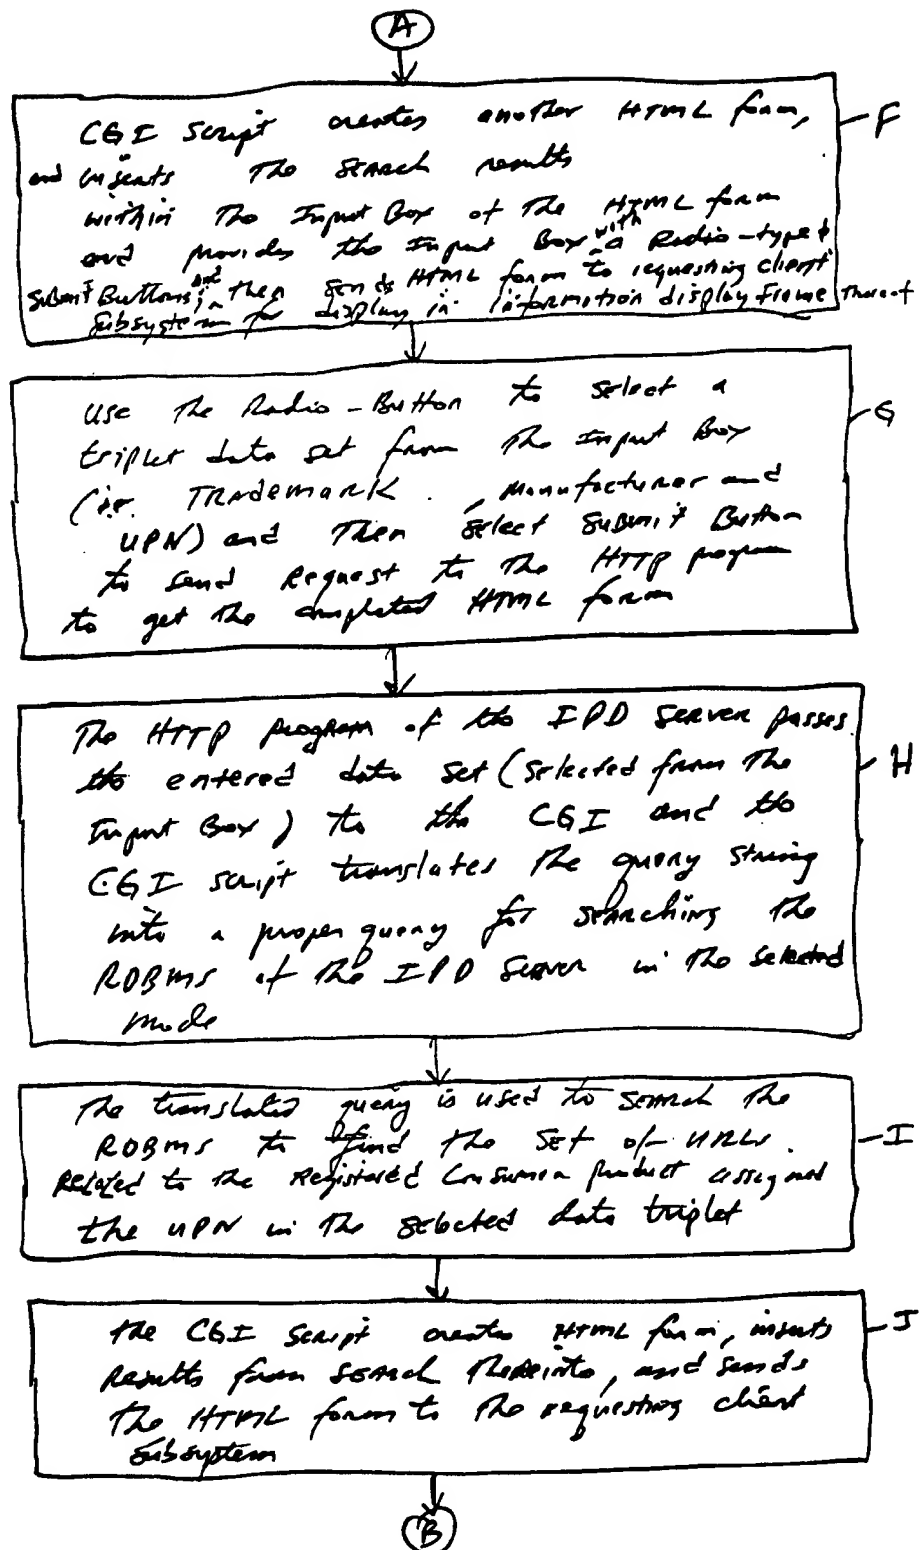 A
CGI Script creates another HTML form, F
and inserts The Search results
within The Input Box of The HTML form
and provides the Input Box with a Radio-type &
Submit Buttons and then sends HTML form to requesting client
Subsystem for display in information display Frame thereof
Use The Radio-Button to select a G
triplet data set from The Input Box
(ie. Trademark, Manufacturer and
UPN) and Then Select Submit Button
to send Request to the HTTP program
to get the completed HTML form
The HTTP program of the IPD Server passes
the entered data set (selected from The H
Input Box) to the CGI and the
CGI script translates the query string
into a proper query for searching the
RDBMS of the IPD Server in the selected
mode
The translated query is used to search the
RDBMS to find the set of URLs I
Related to the Registered Consumer product assigned
the UPN in The selected data triplet
the CGI Script creates HTML form, inserts J
Results from search thereinto, and sends
the HTML form to the requesting client
Subsystem
B